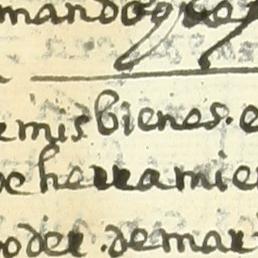 mando que
emis bienes. e
de herramie
poder. demar